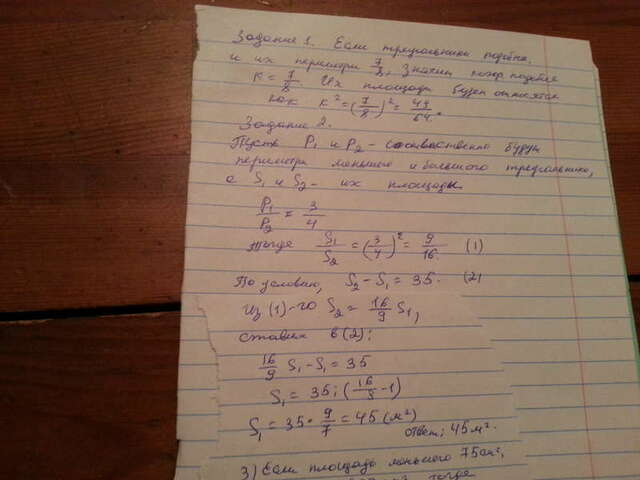 Задание 1. Если треугольники подобны,
и их периметры 7/8, значит коэф подобия
к = 7/8. Их площади будут относятся
как к² = (7/8)² = 49/64.
Задание 2.
Пусть P₁ и P₂ - соотвественно будут
периметры меньшего и большого треугольника,
а S₁ и S₂ - их площады
P₁/P₂ = 3/4
Тогда S₁/S₂ = (3/4)² = 9/16. (1)
По условию, S₂ - S₁ = 35. (2)
из (1)-го S₂ = 16/9 S₁,
ставим в (2):
16/9 S₁ - S₁ = 35
S₁ = 35 : (16/9 - 1)
S₁ = 35 * 9/7 = 45 (м²)
ответ: 45 м².
3) Если площадь меньшого 75см²,
тогда